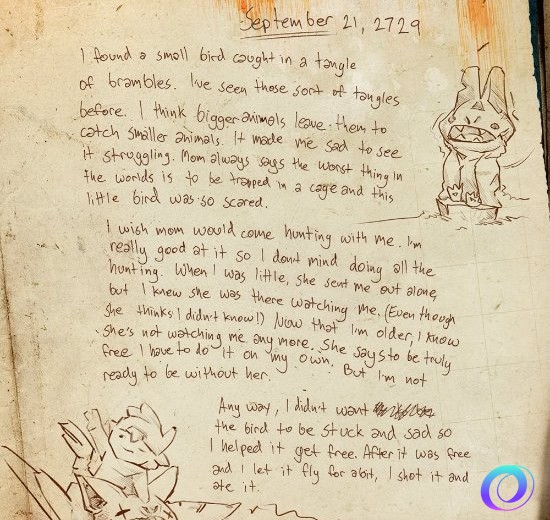 September 21, 2729
I found a small bird caught in a tangle
of brambles. I've seen those sort of tangles
before. I think bigger animals leave them to
catch smaller animals. It made me sad to see
it struggling. Mom always says the worst thing in
the worlds is to be trapped in a cage and this
little bird was so scared.
I wish mom would come hunting with me. I'm
really good at it so I dont mind doing all the
hunting. When I was little, she sent me out alone,
but I knew she was there watching me. (Even though
she thinks I didn't know!) Now that I'm older, I know
she's not watching me any more. She says to be truly
free I have to do it on my own. But I'm not
ready to be without her.
Any way, I didn't want
the bird to be stuck and sad so
I helped it get free. After it was free
and I let it fly for abit, I shot it and
ate it.